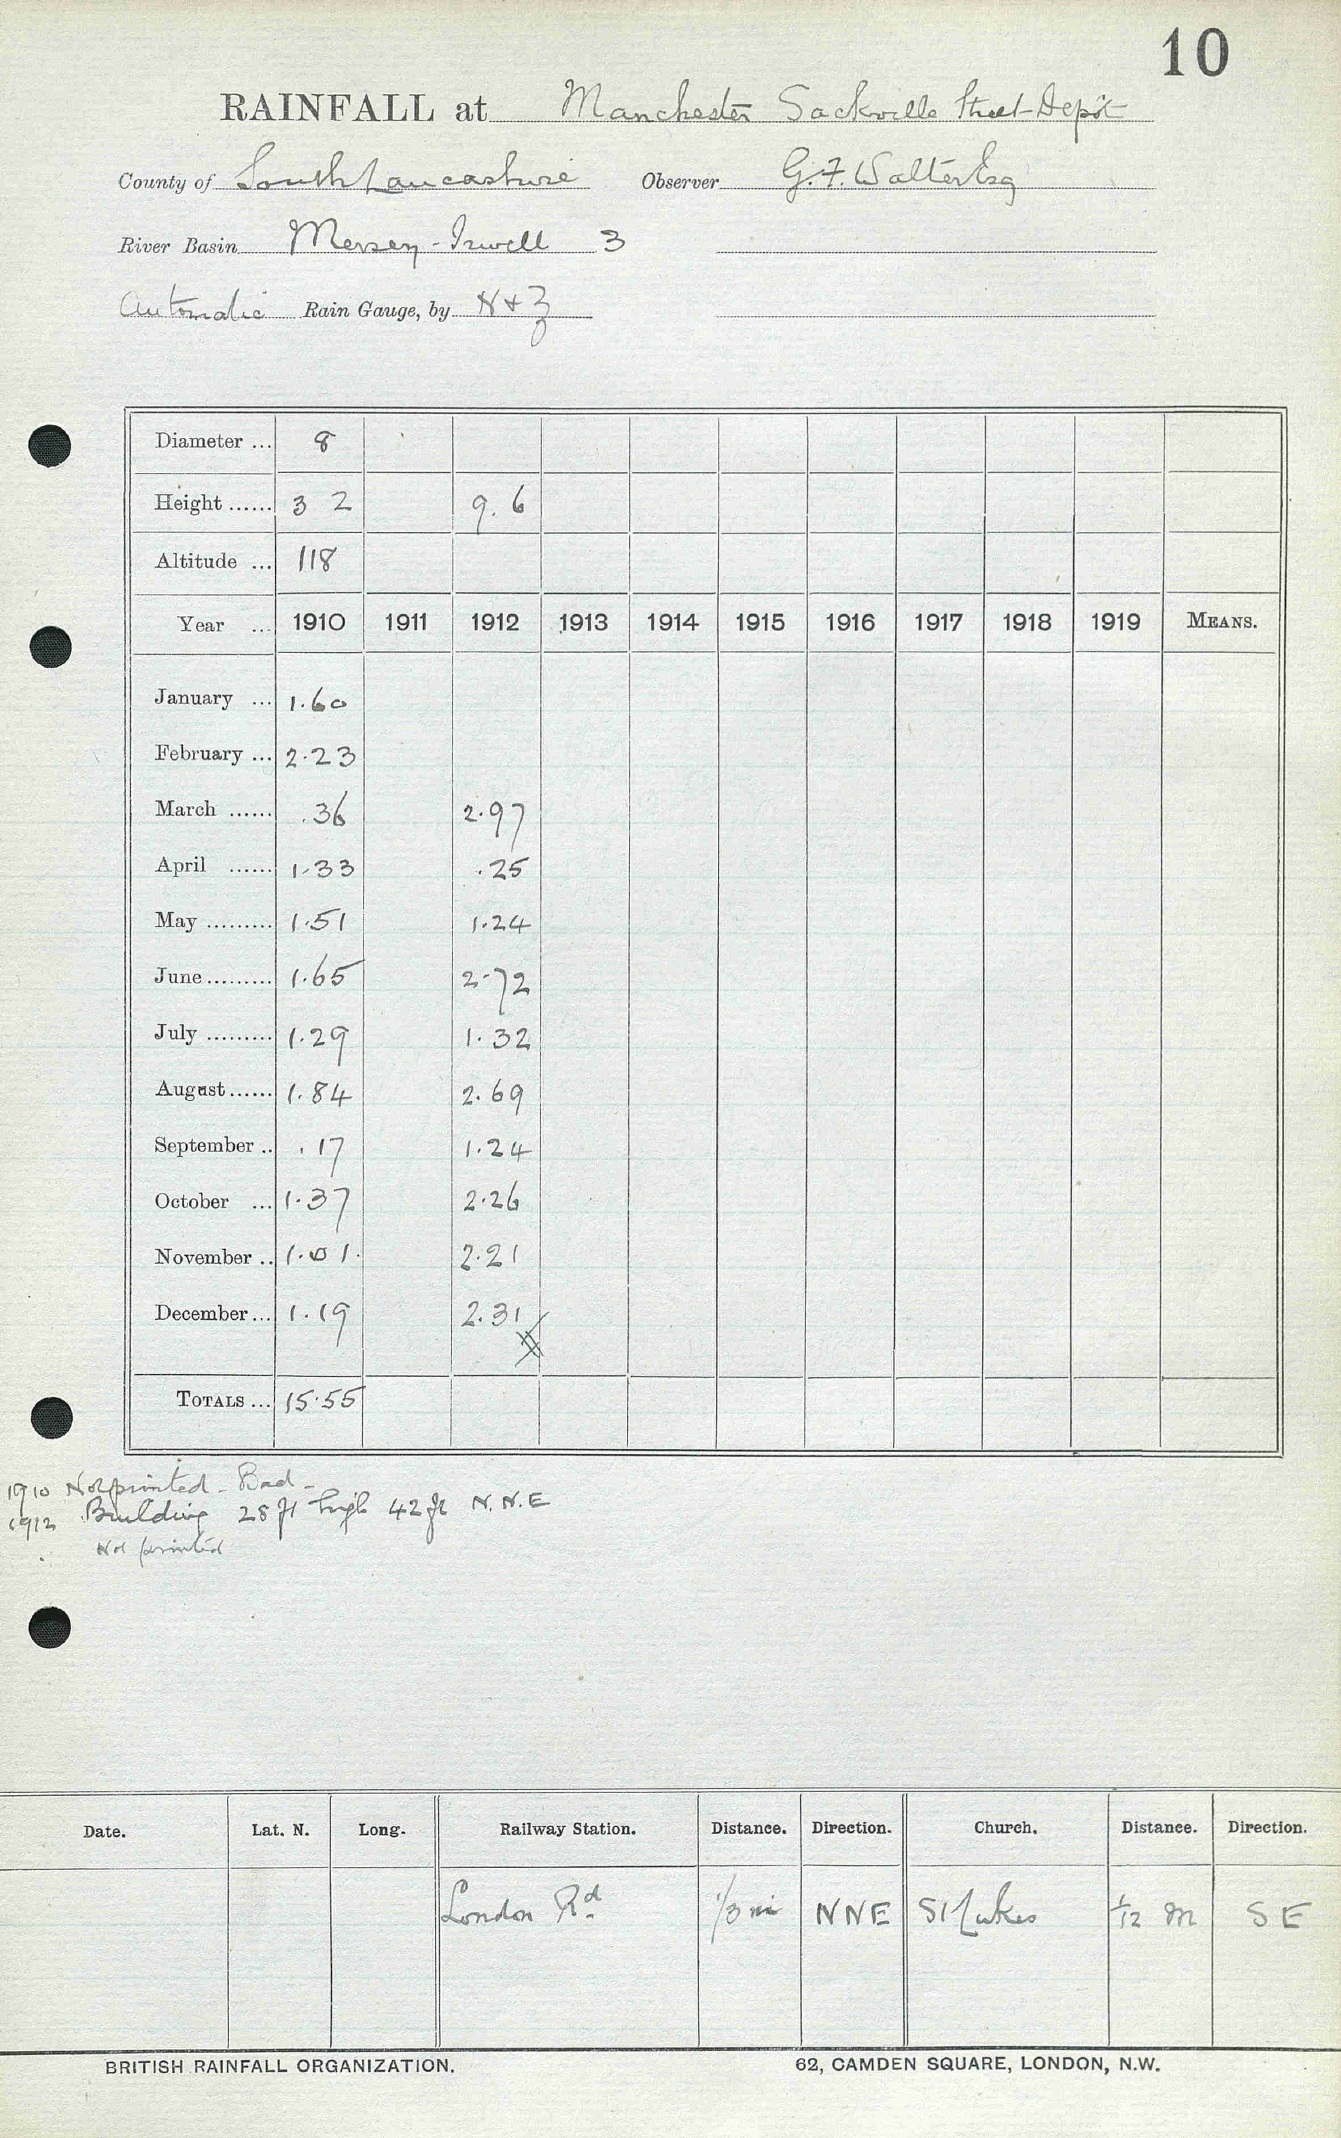 10
RAINFALL at Manchester Sackville Street Depôt
County of South Lancashire Observer G. F. Walter Esq
River Basin Mersey - Irwell 3
Automatic Rain Gauge, by N + Z
Diameter ... 8
Height ...... 3 2 9. 6
Altitude ... 118
Year ... 1910 1911 1912 1913 1914 1915 1916 1917 1918 1919 MEANS.
January ... 1.60
February ... 2.23
March ...... .36 2.97
April ...... 1.33 .25
May ......... 1.51 1.24
June ......... 1.65 2.72
July ......... 1.29 1.32
August ...... 1.84 2.69
September .. .17 1.24
October ... 1.37 2.26
November .. 1.01 2.21
December ... 1.19 2.31
TOTALS ... 15.55
1910 Not printed - Bad -
1912 Building 28 ft high 42 ft N.N.E
Not printed
Date. Lat. N. Long. Railway Station. Distance. Direction. Church. Distance. Direction.
London Rd 1/3 mi NNE St Lukes 1/12 m SE
BRITISH RAINFALL ORGANIZATION. 62, CAMDEN SQUARE, LONDON, N.W.